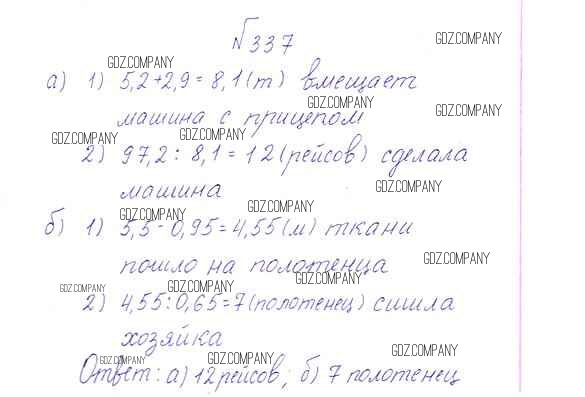 №337
GDZ.COMPANY
GDZ.COMPANY
а) 1) 5,2+2,9=8,1(т) вмещает
GDZ.COMPANY
GDZ.COMPANY
машина с прицепом
GDZ.COMPANY
GDZ.COMPANY
2) 97,2:8,1=12(рейсов) сделала
GDZ.COMPANY
машина
GDZ.COMPANY
GDZ.COMPANY
б) 1) 5,5-0,95=4,55(м) ткани
GDZ.COMPANY
пошло на полотенца
GDZ.COMPANY
GDZ.COMPANY
GDZ.COMPANY
2) 4,55:0,65=7(полотенец) сшила
хозяйка
GDZ.COMPANY
GDZ.COMPANY
GDZ.COMPANY
Ответ: а) 12 рейсов; б) 7 полотенец